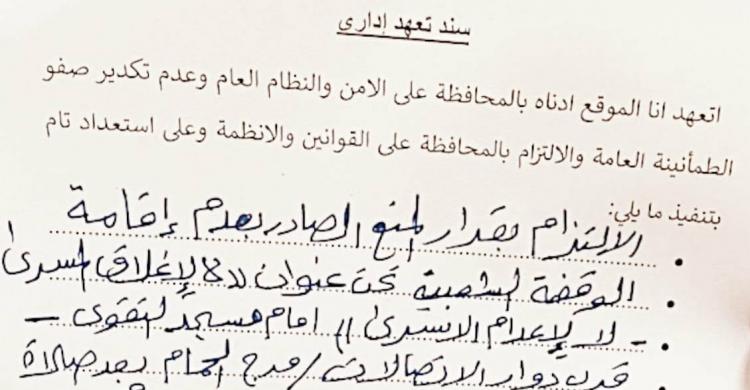 سند تعهد إداري
اتعهد انا الموقع ادناه بالمحافظة على الامن والنظام العام وعدم تكدير صفو
الطمأنينة العامة والالتزام بالمحافظة على القوانين والانظمة وعلى استعداد تام
بتنفيذ ما يلي:
الالتزام بقرار المنع الصادر بعدم إقامة
الوقفة الشعبية تحت عنوان "لا لإغلاق المسرى
- لا لإعدام الاسرى" امام مسجد التقوى -
قرب دوار الاتصالات / مرج الحمام بعد صلاة